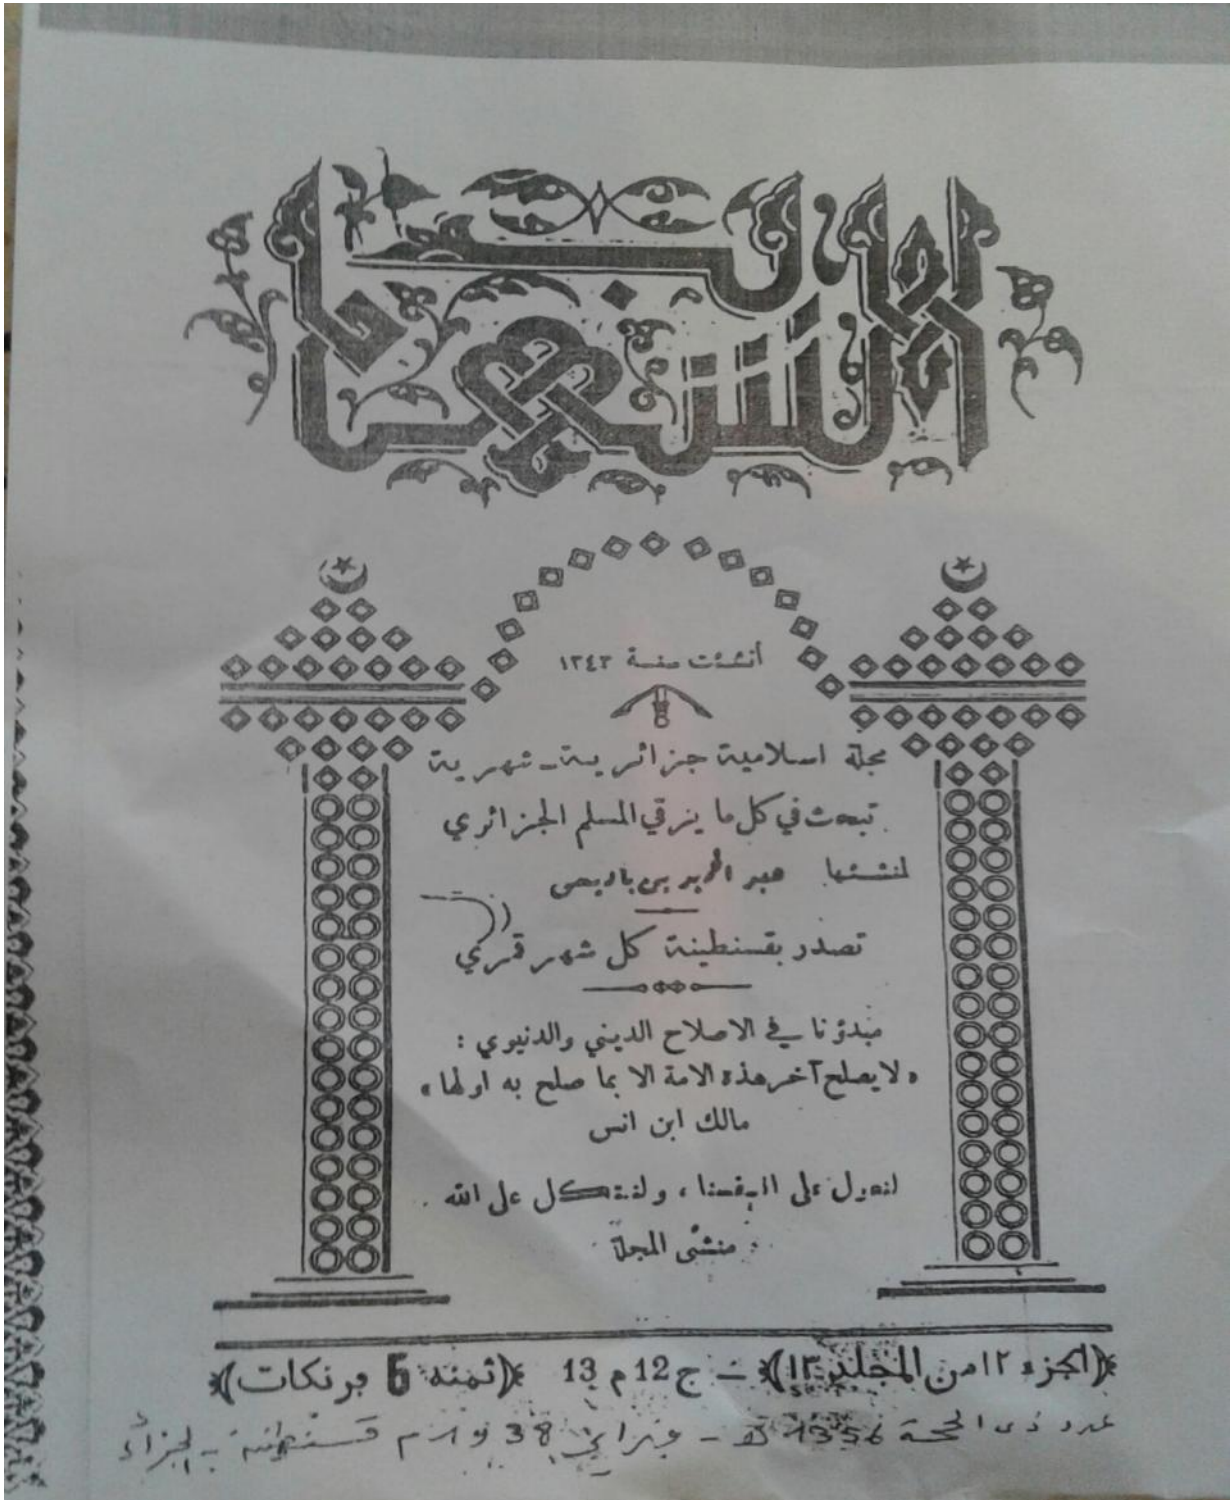 الشهاب
أنشئت سنة ١٣٤٣
مجلة اسلامية جزائرية - شهرية
تبحث في كل ما يرقي المسلم الجزائري
لمنشئها عبد الحميد بن باديس
تصدر بقسنطينة كل شهر قمري
مبدؤنا في الاصلاح الديني والدنيوي :
« لا يصلح آخر هذه الامة الا بما صلح به اولها »
مالك ابن انس
لنعول على انفسنا ، ولنتكل على الله .
منشئ المجلة
(الجزء ١٢ من المجلد ١٣) - ج 12 م 13 (ثمنه 5 فرنكات)
عدد ذى الحجة 1356 هـ - فبراير 38 19 م قسنطينة - الجزائر